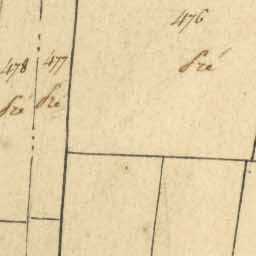 476
Pré
477
Pré
478
Pré